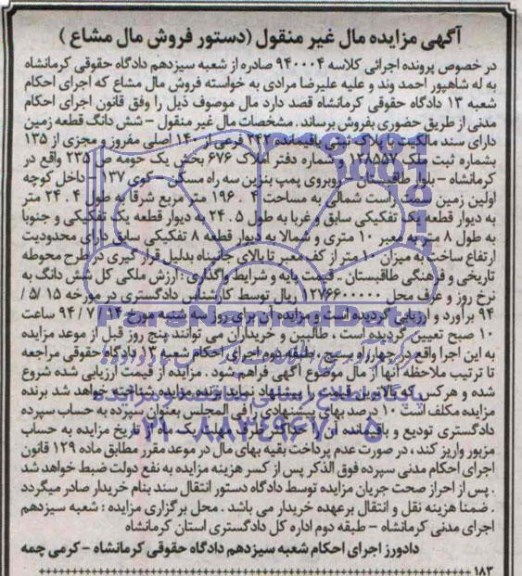 آگهی مزایده مال غیر منقول (دستور فروش مال مشاع )
در خصوص پرونده اجرائی کلاسه ۹۴۰۰۰۴ صادره از شعبه سیزدهم دادگاه حقوقی کرمانشاه
به له شاهپور احمد وند و علیه علیرضا مرادی به خواسته فروش مال مشاع که اجرای احکام
شعبه ۱۳ دادگاه حقوقی کرمانشاه قصد دارد مال موصوف ذیل را وفق قانون اجرای احکام
مدنی از طریق حضوری بفروش برساند . مشخصات مال غیر منقول - شش دانگ قطعه زمین
دارای سند مالکیت با پلاک ثبتی باقیمانده ۲۴۲ فرعی از ۱۴۰ اصلی مفروز و مجزی از ۱۳۵
بشماره ثبت ملک ۱۲۸۵۵۷ و شماره دفتر املاک ۶۷۶ بخش یک حومه ص ۲۳۵ واقع در
کرمانشاه - بلوار طاقبستان - روبروی پمپ بنزین سه راه مسکن - کوی ۱۳۷ - داخل کوچه
اولین زمین سمت راست شمالی به مساحت ۱۹۶.۴ متر مربع شرقا به طول ۲۴.۴ متر
به دیوار قطعه یک تفکیکی سابق و غربا به طول ۲۴.۵ به دیوار قطعه یک تفکیکی و جنوبا
به طول ۸ متر به معبر ۱۰ متری و شمالا به دیوار قطعه ۸ تفکیکی سابق دارای محدودیت
ارتفاع ساخت به میزان ۱۰ متر از کف معبر تا بالای جانپناه بدلیل قرار گیری در طرح محوطه
تاریخی و فرهنگی طاقبستان . قیمت پایه و شرایط واگذاری : ارزش ملکی کل شش دانگ به
نرخ روز و عرف محل ۱۲۷۶۶۰۰۰۰۰۰ ریال توسط کارشناس دادگستری در مورخه ۱۵ /۵ /
۹۴ برآورد و ارزیابی گردیده است و مزایده آن برای روز سه شنبه مورخ ۱۴ / ۷ / ۹۴ ساعت
۱۰ صبح تعیین گردیده است ، طالبین و خریداران می توانند پنج روز قبل از موعد مزایده
به این اجرا واقع در چهارراه بسیج ، طبقه دوم اجرای احکام شعبه ۱۳ دادگاه حقوقی مراجعه
تا ترتیب ملاحظه آنها از مال موضوع آگهی فراهم شود . مزایده از قیمت ارزیابی شده شروع
شده و هر کس که بالاترین قیمت را پیشنهاد نماید برنده مزایده شناخته خواهد شد برنده
مزایده مکلف است ۱۰ درصد بهای پیشنهادی را فی المجلس بعنوان سپرده به حساب سپرده
دادگستری تودیع و باقیمانده آن را حداکثر ظرف مهلت یک ماه از تاریخ مزایده به حساب
مزبور واریز کند ، در صورت عدم پرداخت بقیه بهای مال در موعد مقرر مطابق ماده ۱۲۹ قانون
اجرای احکام مدنی سپرده فوق الذکر پس از کسر هزینه مزایده به نفع دولت ضبط خواهد شد
. پس از احراز صحت جریان مزایده توسط دادگاه دستور انتقال سند بنام خریدار صادر میگردد
. ضمنا هزینه نقل و انتقال برعهده خریدار می باشد . محل برگزاری مزایده : شعبه سیزدهم
اجرای مدنی کرمانشاه - طبقه دوم اداره کل دادگستری استان کرمانشاه
دادورز اجرای احکام شعبه سیزدهم دادگاه حقوقی کرمانشاه - کرمی چمه
۱۸۳
ParsNamadData
پایگاه اطلاع رسانی مناقصه و مزایده
۰۲۱-۸۸۳۴۹۶۷۰-۵